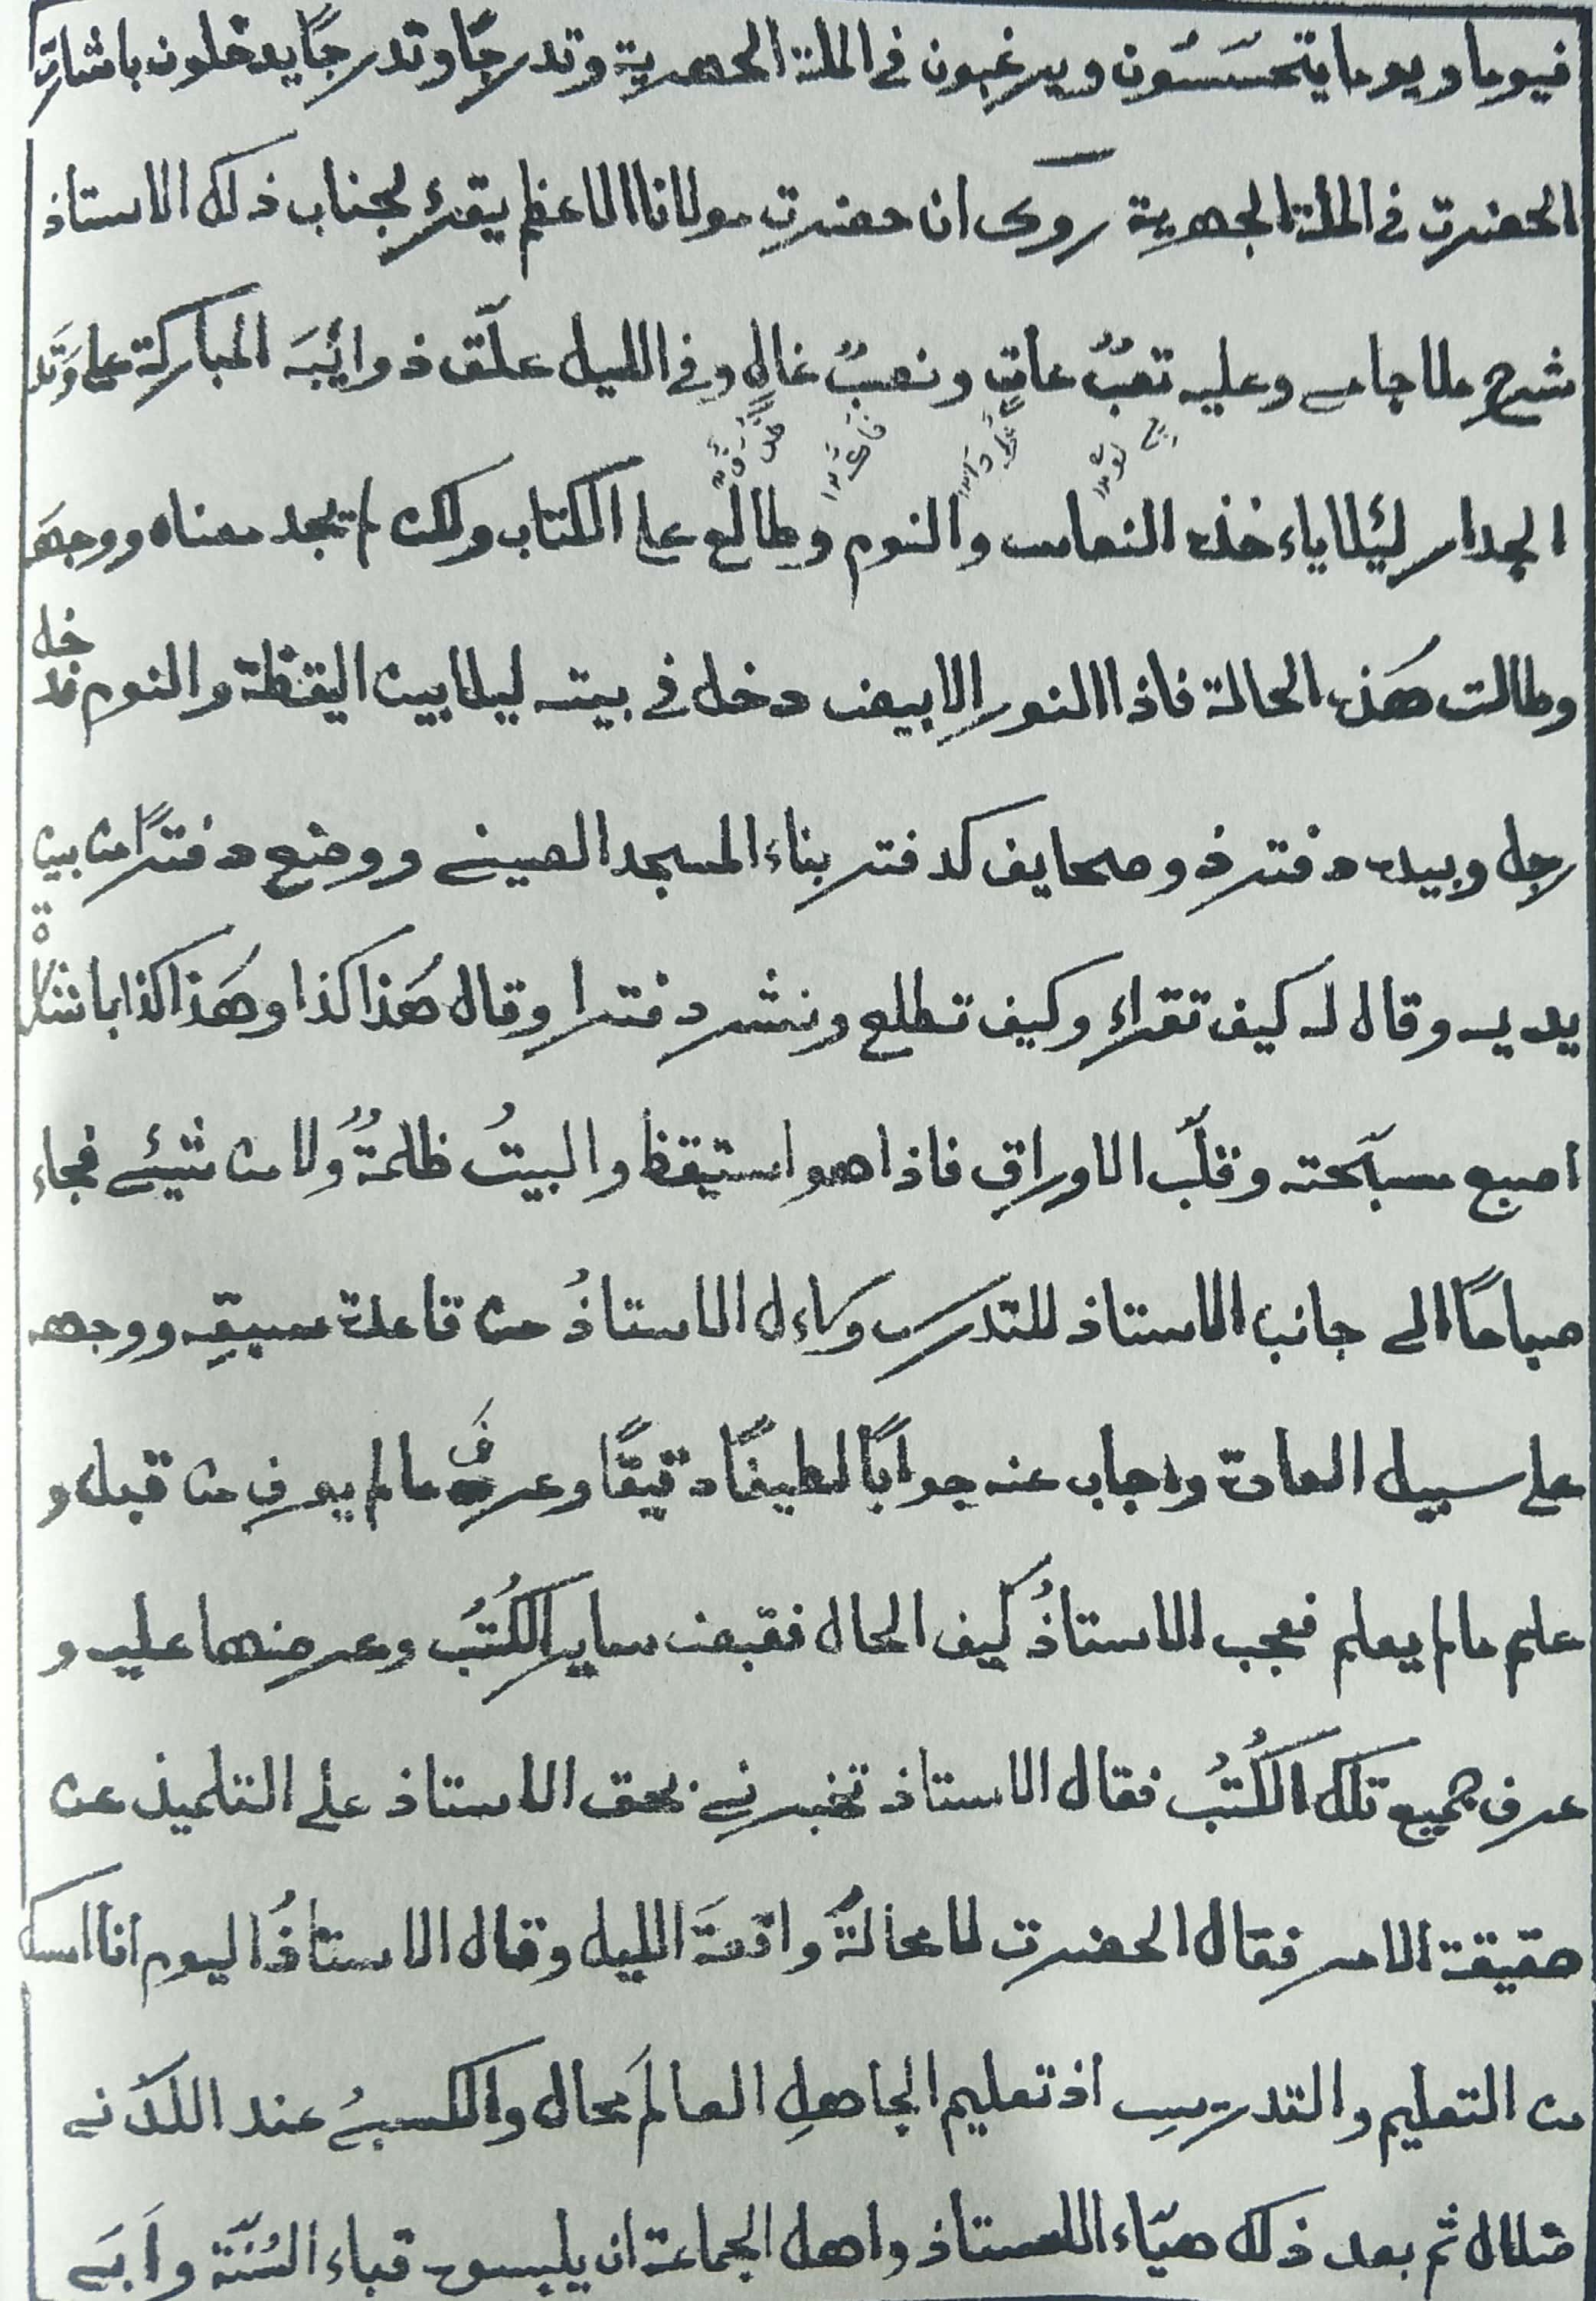 فيوما ويوما يتحسّسون ويرغبون فى الملة الجهرية وتدرجًا وتدرجًا يدخلون باشارة
الحضرت فى الملة الجهرية روى ان حضرت مولانا الاعظم يقرئ لجناب ذلك الاستاذ
شرح ملا جامى وعليه تعبٌ عاتٍ ونصبٌ غالٍ وفى الليل علّق ذوائبَه المباركة على وَتَد
الجدار لئلا ياءخذه النعاس والنوم وطالع على الكتاب ولكن لم يجد معناه ووجهَه
وطالت هَذه الحالة فاذا النور الابيض دخل فى بيته ليلا بين اليقظة والنوم فدخل
رجل وبيده دفتر ذو صحايف كدفتر بناء المسجد الصينى ووضع دفترًا من بين
يديه وقال له كيف تقراء وكيف تطلع ونشر دفترا وقال هَذا كذا وهَذا كذا باشارة
اصبع مسبّحته وقلّب الاوراق فاذا هو استيقظ والبيتُ ظلمةٌ ولا من شيئ فجاء
صباحًا الى جانب الاستاذ للتدرس وساءل الاستاذُ من قاعدة سبقه ووجهه
على سبيل العادة وءجاب عنه جوابًا لطيفًا دقيقًا وعرف ما لم يعرف من قبل و
علم ما لم يعلم فعجب الاستاذُ كيف الحال فقبض ساير الكُتُب وعرضها عليه و
عرف جميع تلك الكُتُب فقال الاستاذ تخبرنى بحق الاستاذ على التلميذ عن
حقيقة الامر فقال الحضرت لا محالةً واقعةَ الليل وقال الاستاذُ اليوم انا امسك
من التعليم والتدريس اذ تعليم الجاهلِ العالمَ محال والكسبىُّ عند اللدنى
ضلال ثم بعد ذلك هيّاء الاستاذ واهل الجماعة ان يلبسوه قباء السُنّة وآبَى